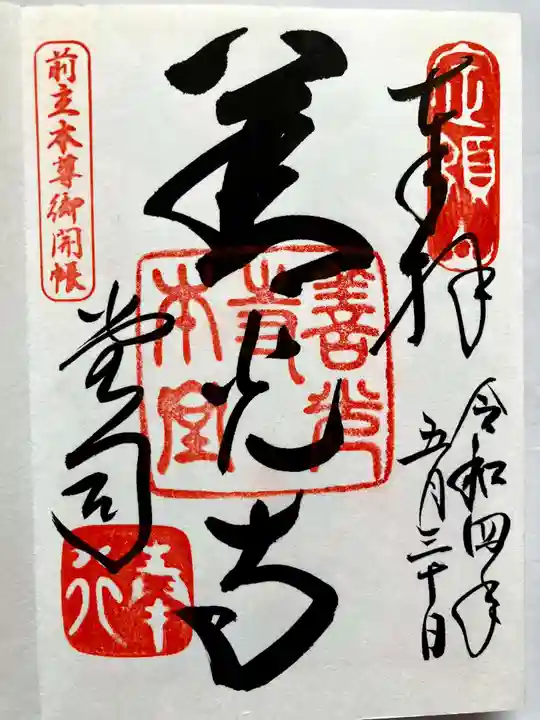 定額山
奉拝
令和四年
五月三十日
善光寺
善光寺本堂
堂司
奉行
前立本尊御開帳